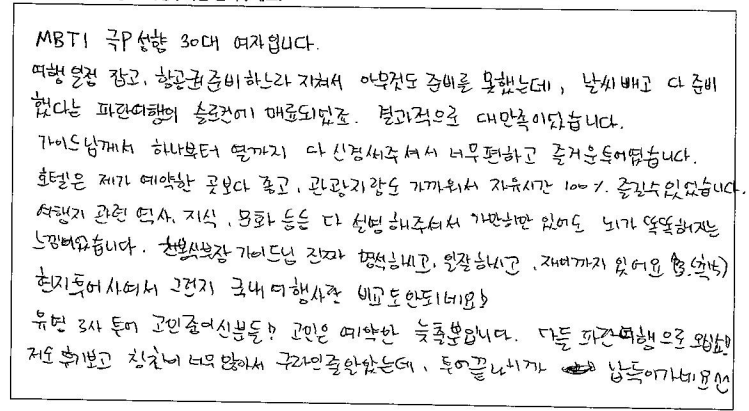 MBTI 극P성향 30대 여자입니다.
여행일정 잡고, 항공권준비하느라 지쳐서 아무것도 준비를 못했는데, 날씨빼고 다 준비
했다는 파란여행의 슬로건에 매료되었죠. 결과적으로 대만족이었습니다.
가이드님께서 하나부터 열까지 다 신경써주셔서 너무편하고 즐거운투어였습니다.
호텔은 제가 예약한 곳보다 좋고, 관광지랑도 가까워서 자유시간 100% 즐길수있었습니다.
여행지 관련 역사, 지식, 문화 등등 다 설명해주셔서 가만히만 있어도 뇌가 똑똑해지는
느낌이었습니다. 가이드님 진짜 명석하시고, 일잘하시고, 재미까지 있어요
현지투어사여서 그런지 국내여행사랑 비교도안되네요!
유명 3사 투어 고민중이신분들? 고민은 예약만 늦출뿐입니다. 다들 파란여행으로 오십쇼!
저도 후기보고 칭찬이 너무많아서 구라인줄알았는데, 투어끝나니까 납득이가네요